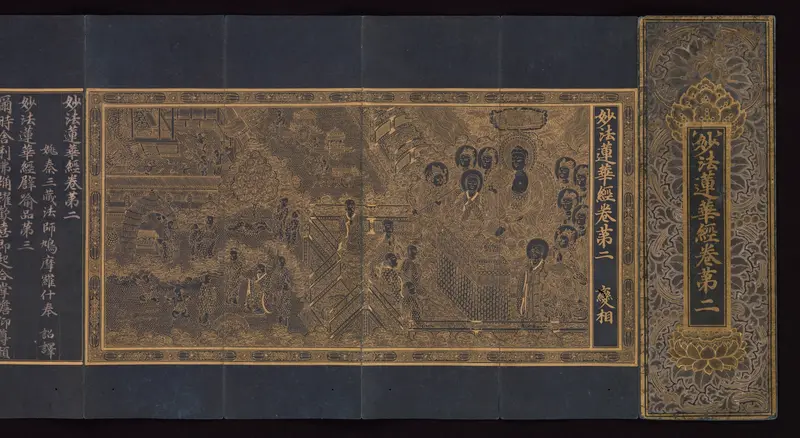 妙法蓮華經卷苐二
妙法蓮華經卷苐二 變相
妙法蓮華經卷苐二
姚秦三藏法師鳩摩羅什奉 詔譯
妙法蓮華經譬喻品苐三
爾時舍利弗踊躍歡喜即起合掌瞻仰尊顔